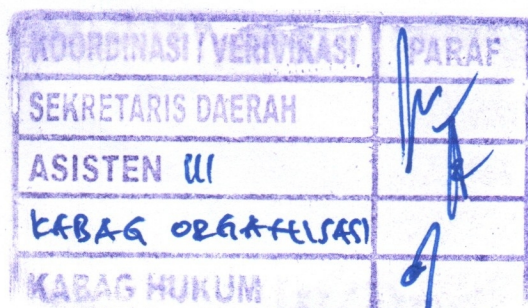 KOORDINASI / VERIVIKASI PARAF
SEKRETARIS DAERAH
ASISTEN III
KABAG ORGANISASI
KABAG HUKUM